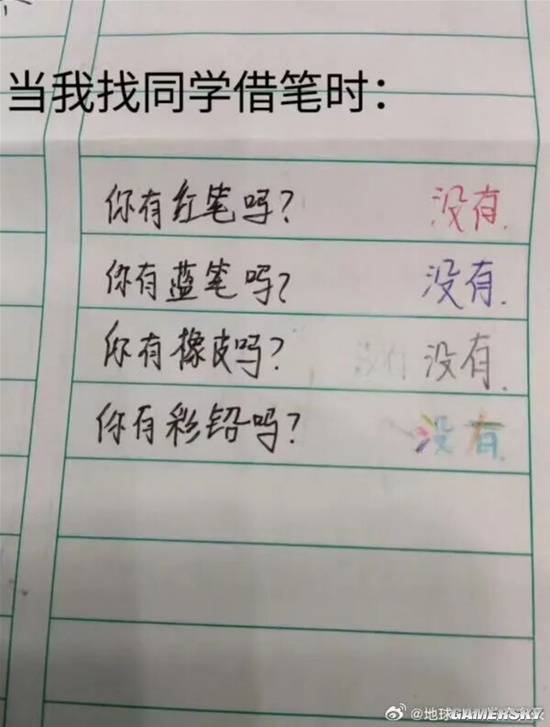 当我找同学借笔时：
你有红笔吗？ 没有.
你有蓝笔吗？ 没有.
你有橡皮吗？ 没有 没有.
你有彩铅吗？ 没有.
@地球
GAMERSKY